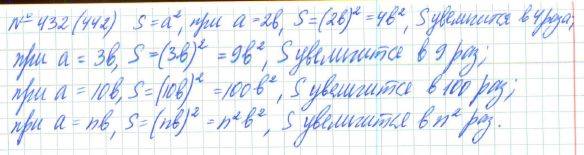 № 432 (442) S = a², при a = 2в, S = (2в)² = 4в², S увеличится в 4 раза;
при a = 3в, S = (3в)² = 9в², S увеличится в 9 раз;
при a = 10в, S = (10в)² = 100в², S увеличится в 100 раз;
при a = nв, S = (nв)² = n²в², S увеличится в n² раз.